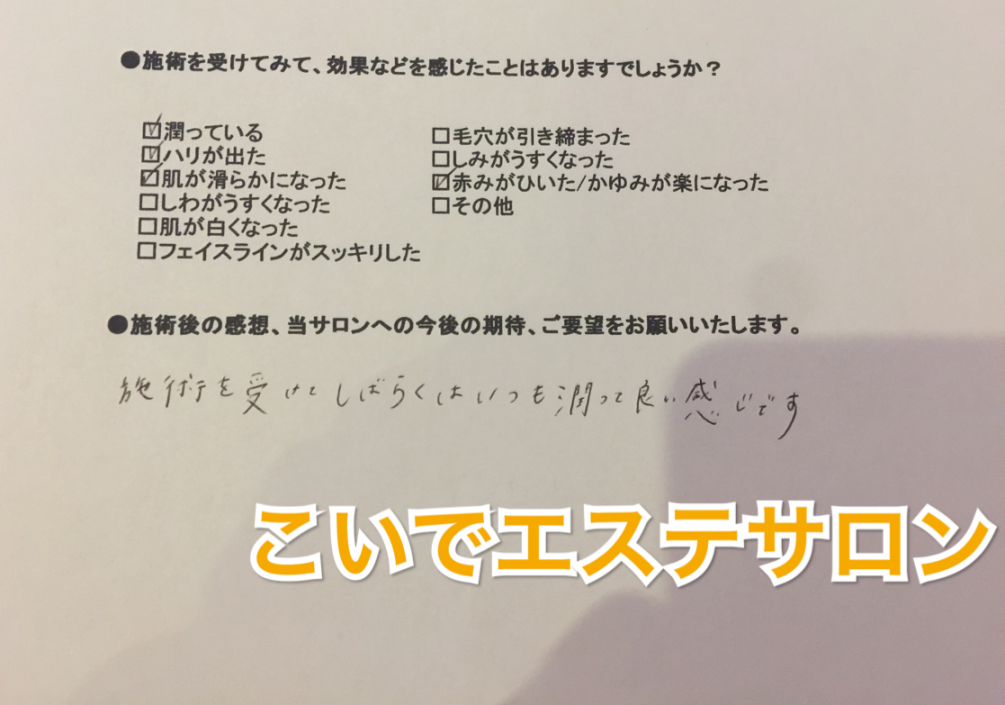 ●施術を受けてみて、効果などを感じたことはありますでしょうか？
☑潤っている
☑ハリが出た
☑肌が滑らかになった
□しわがうすくなった
□肌が白くなった
□フェイスラインがスッキリした
□毛穴が引き締まった
□しみがうすくなった
☑赤みがひいた/かゆみが楽になった
□その他
●施術後の感想、当サロンへの今後の期待、ご要望をお願いいたします。
施術を受けてしばらくはいつも潤って良い感じです
こいでエステサロン